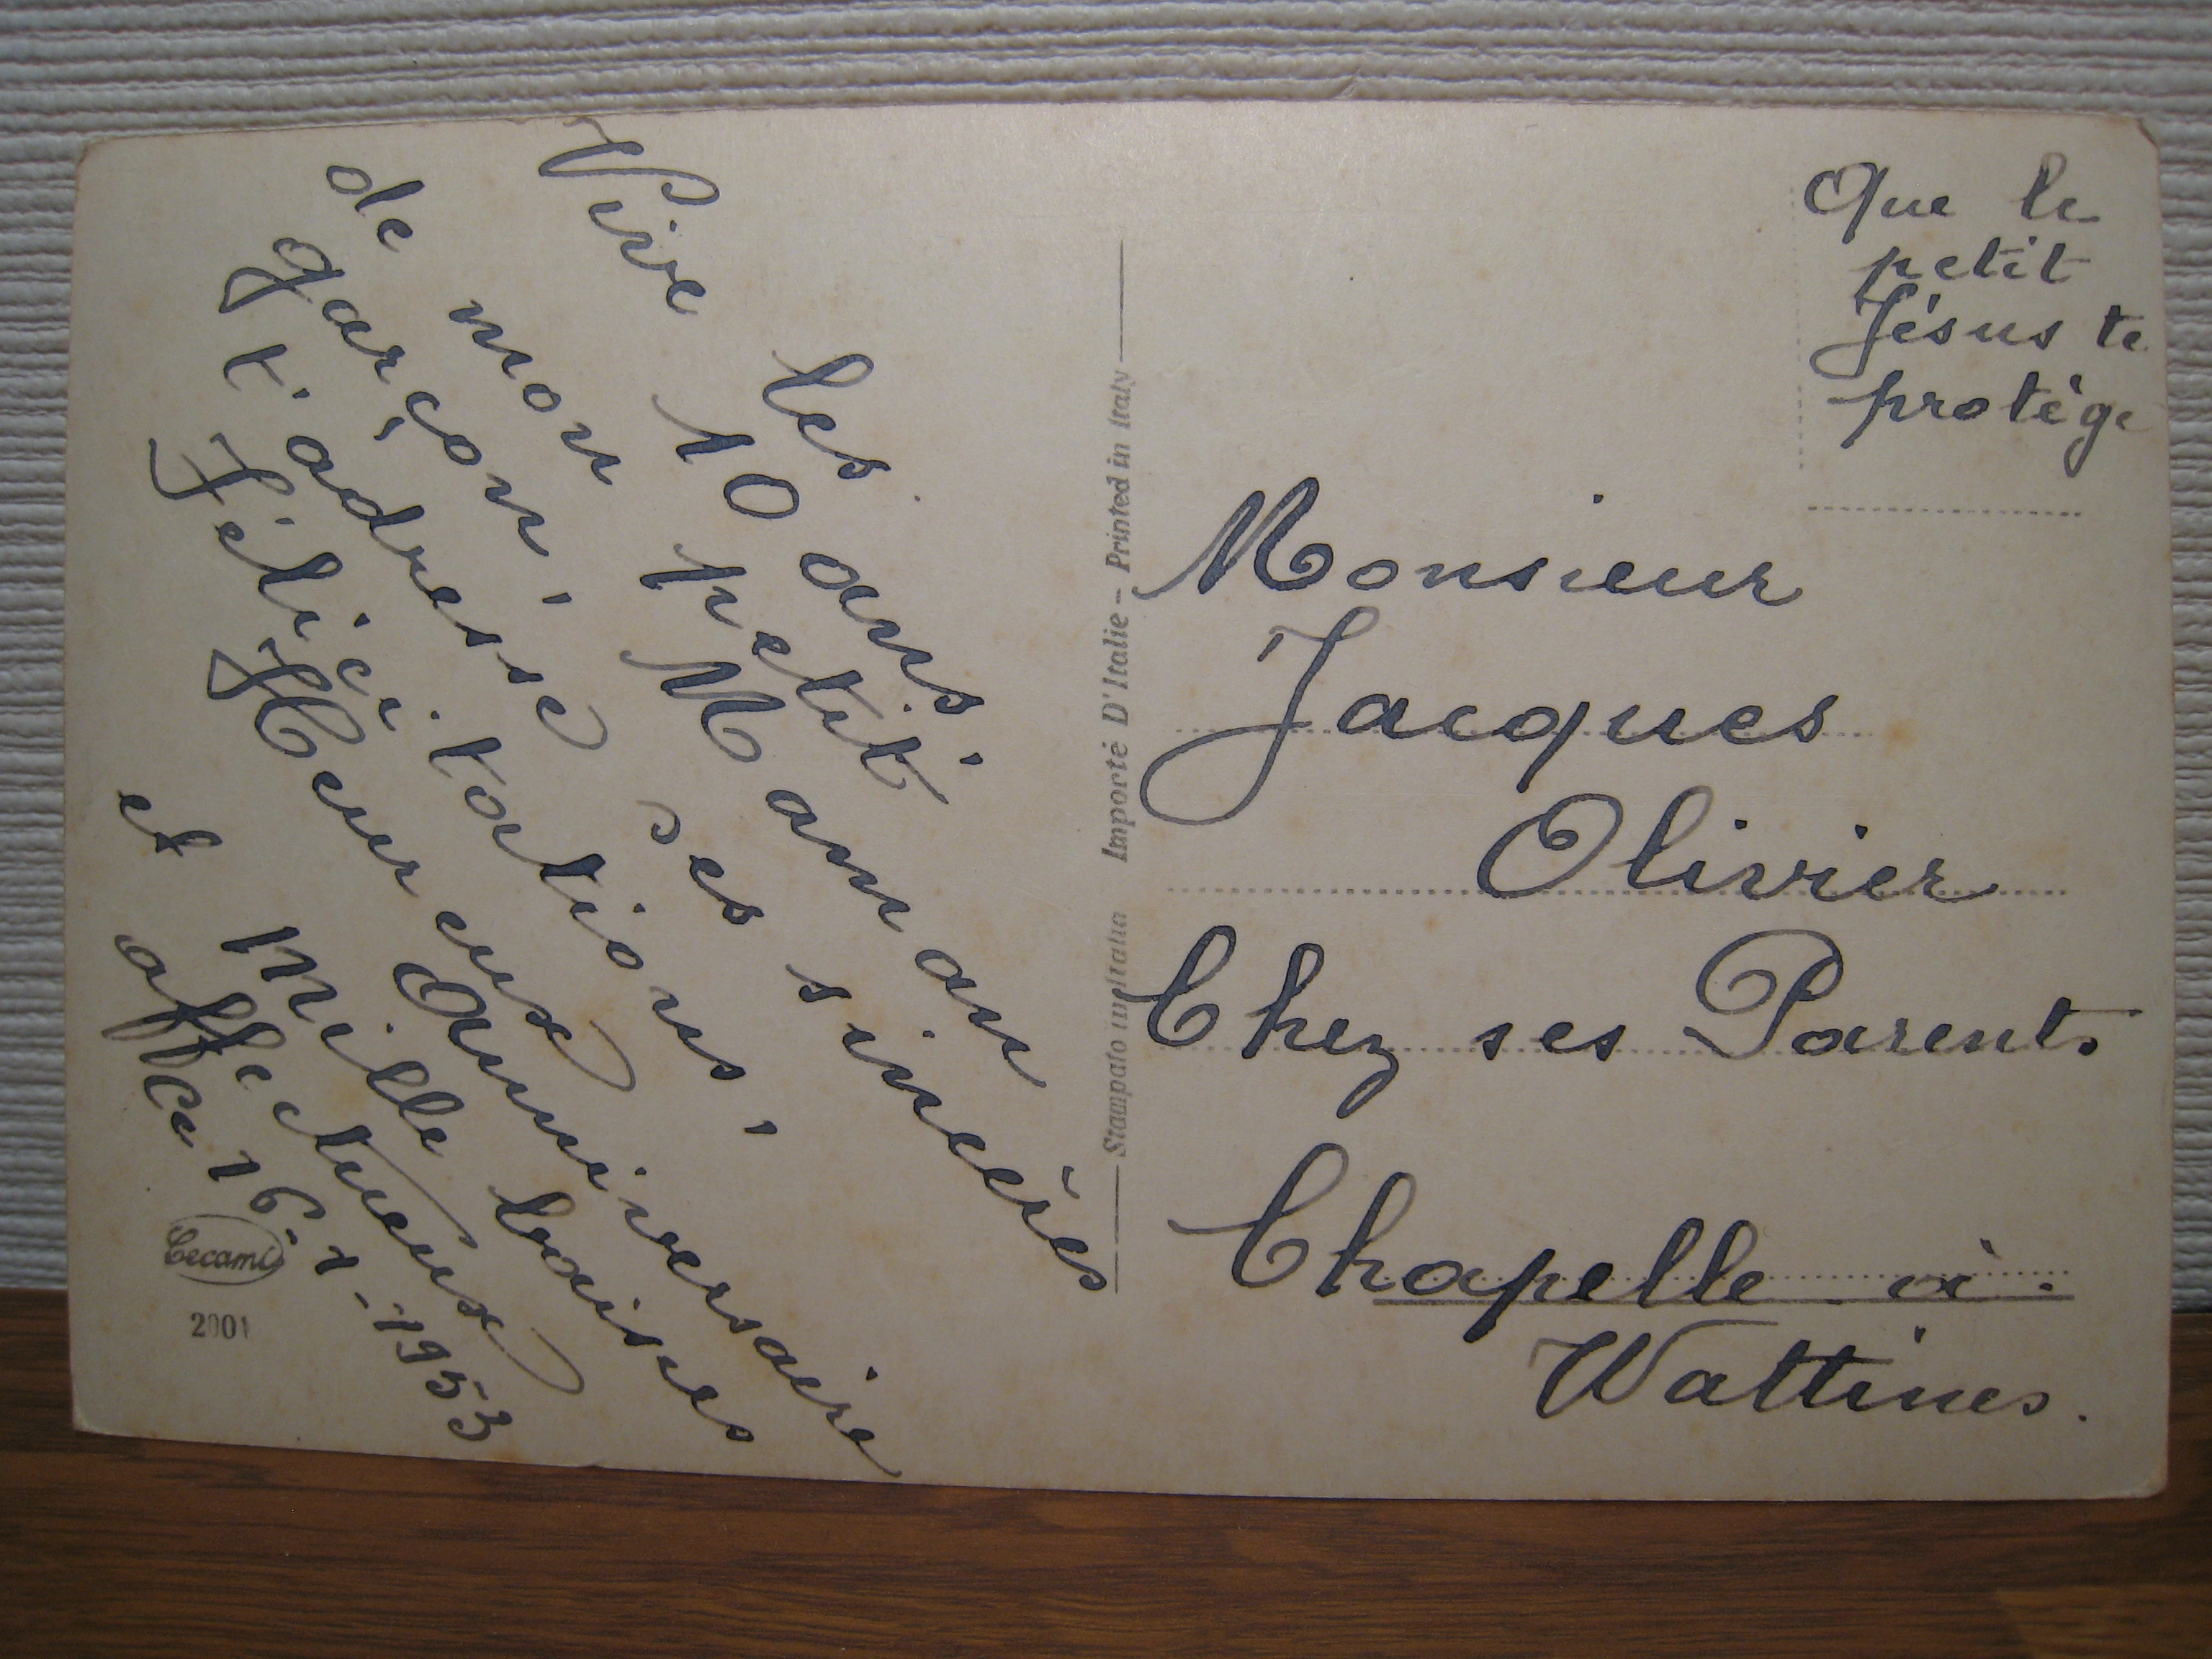 Vive les 10 ans,
de mon petit
garçon, Maman
t'adresse ses sincères
Félici.tations,
Heureux Anniversaire
et mille baises
affectueux
Ce 16-1-1953
Cecami
2001
Stampato in Italia Importé D'Italie - Printed in Italy
Que le
petit
Jésus te
protège
Monsieur
Jacques
Olivier
Chez ses Parents
Chapelle-à-
Wattines.